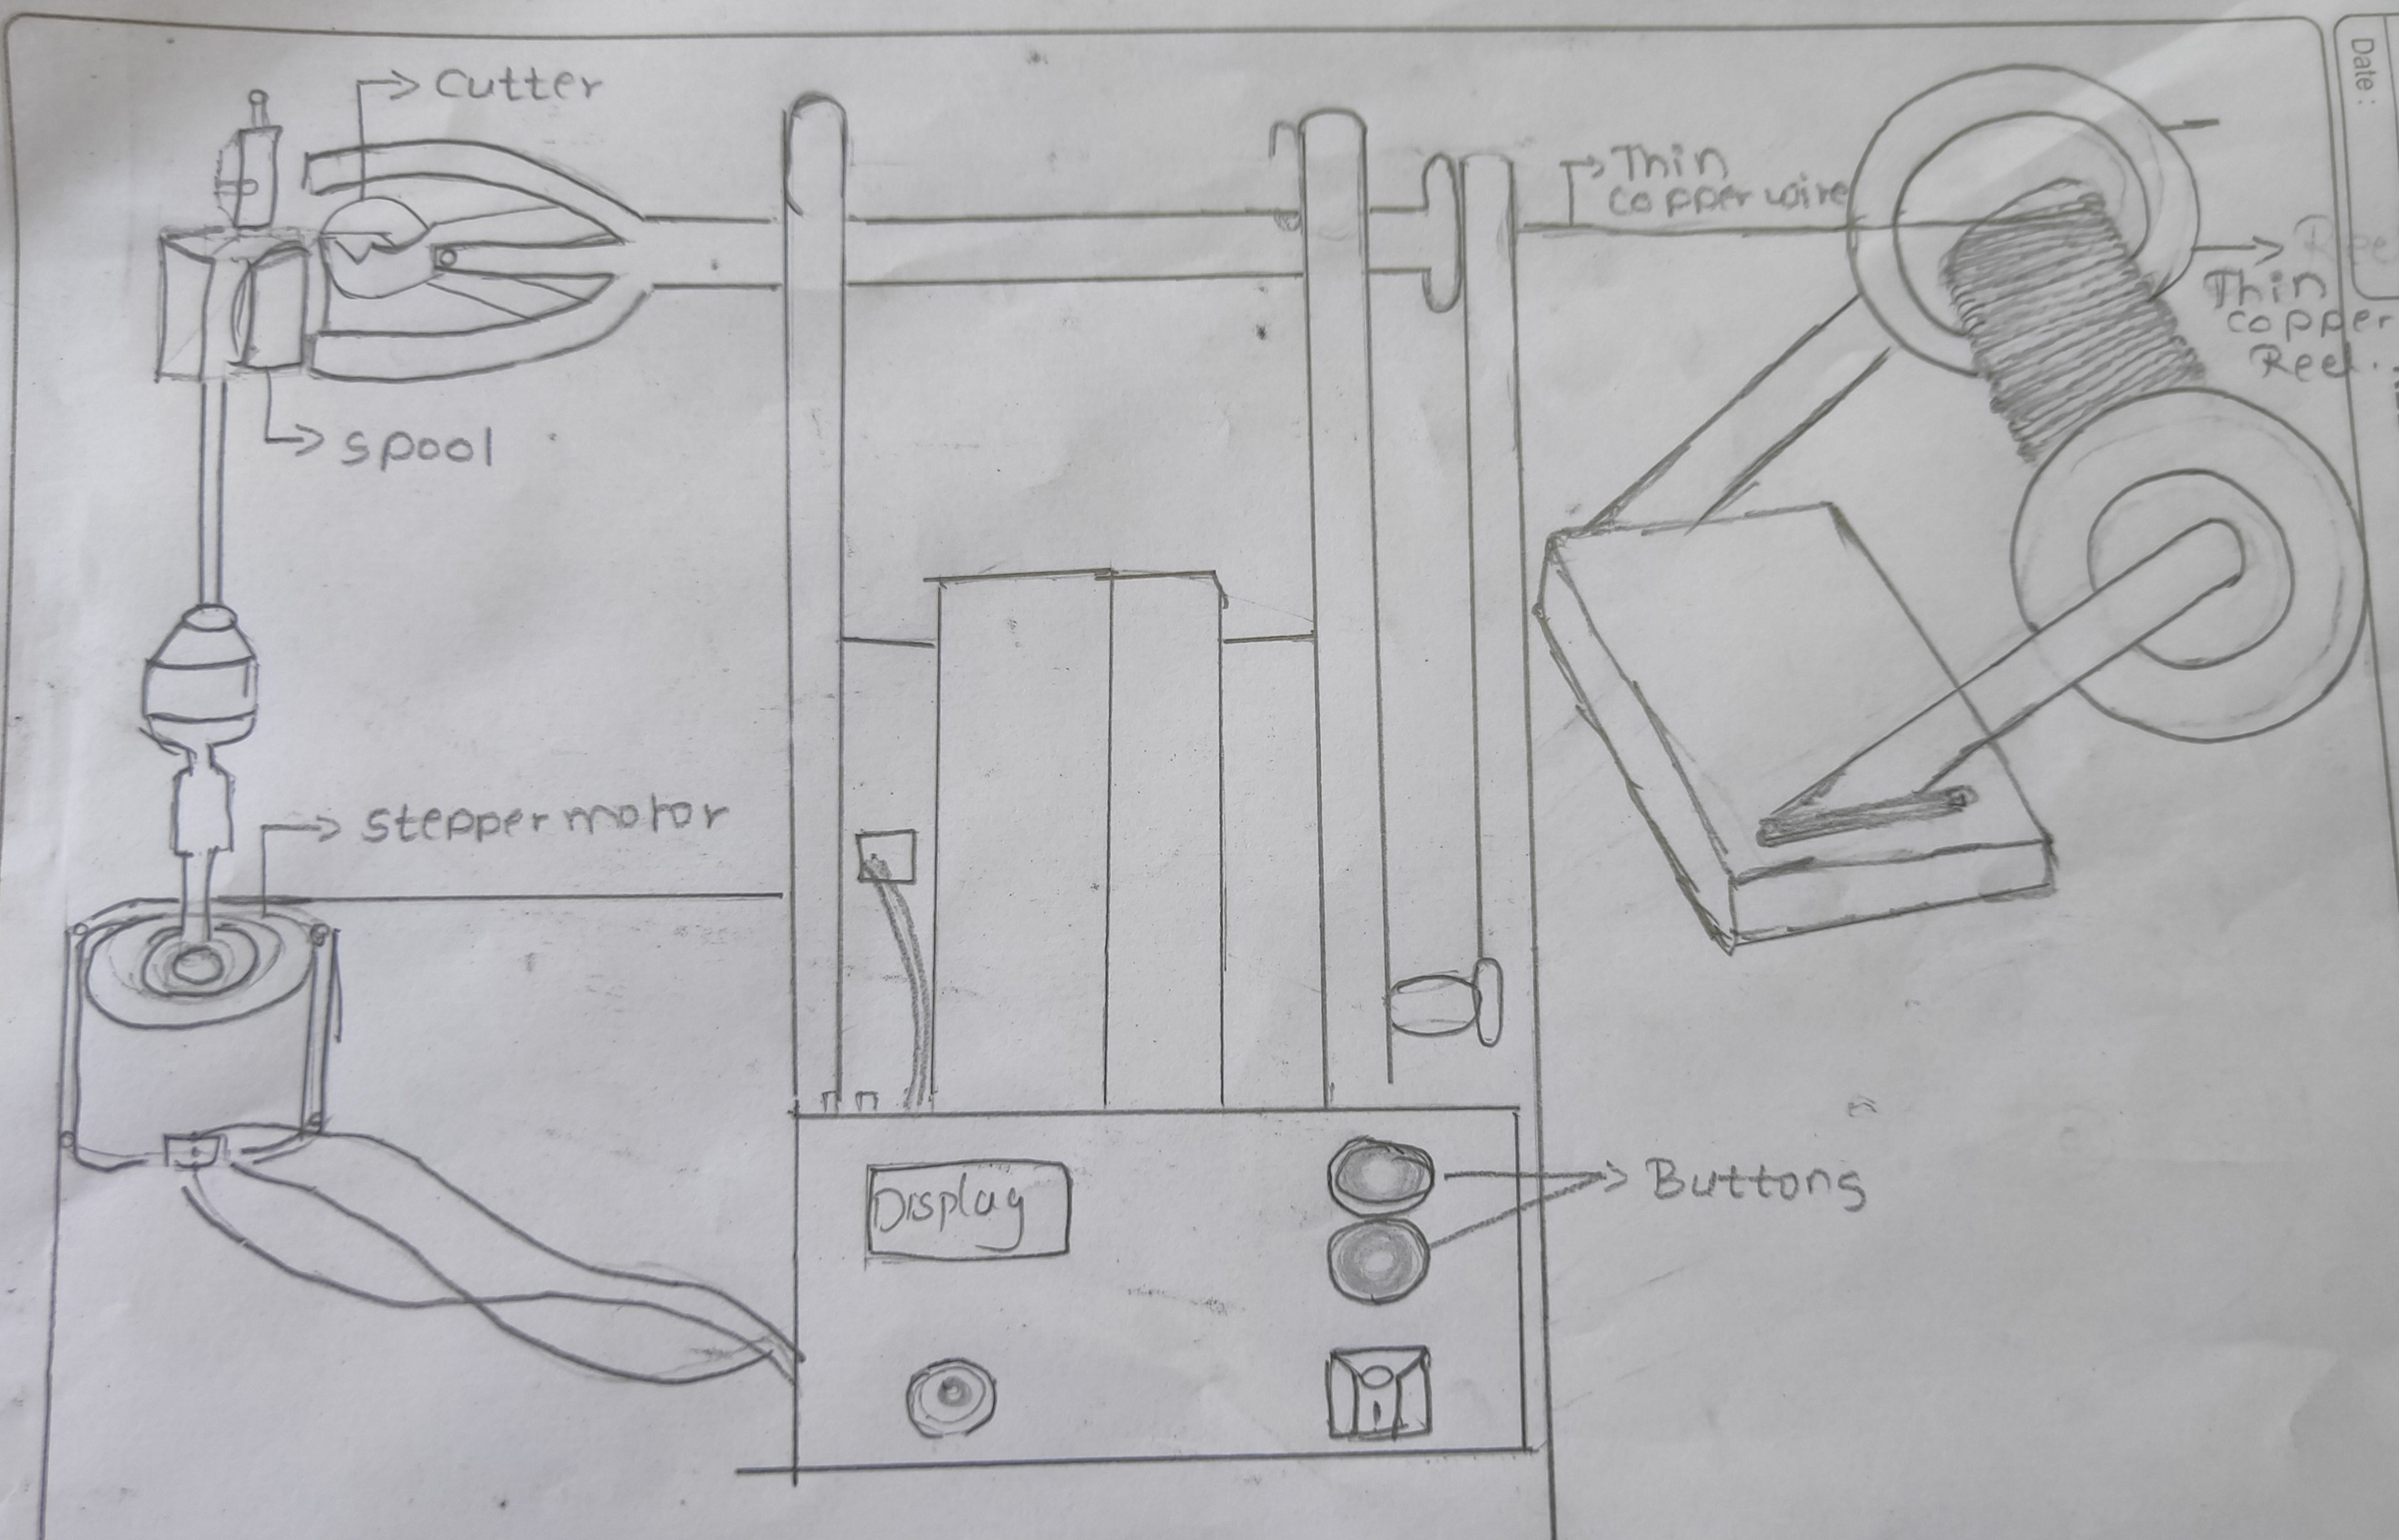 Date:
Cutter
Thin
copper wire
Thin
copper
Reel.
spool
stepper motor
Display
Buttons